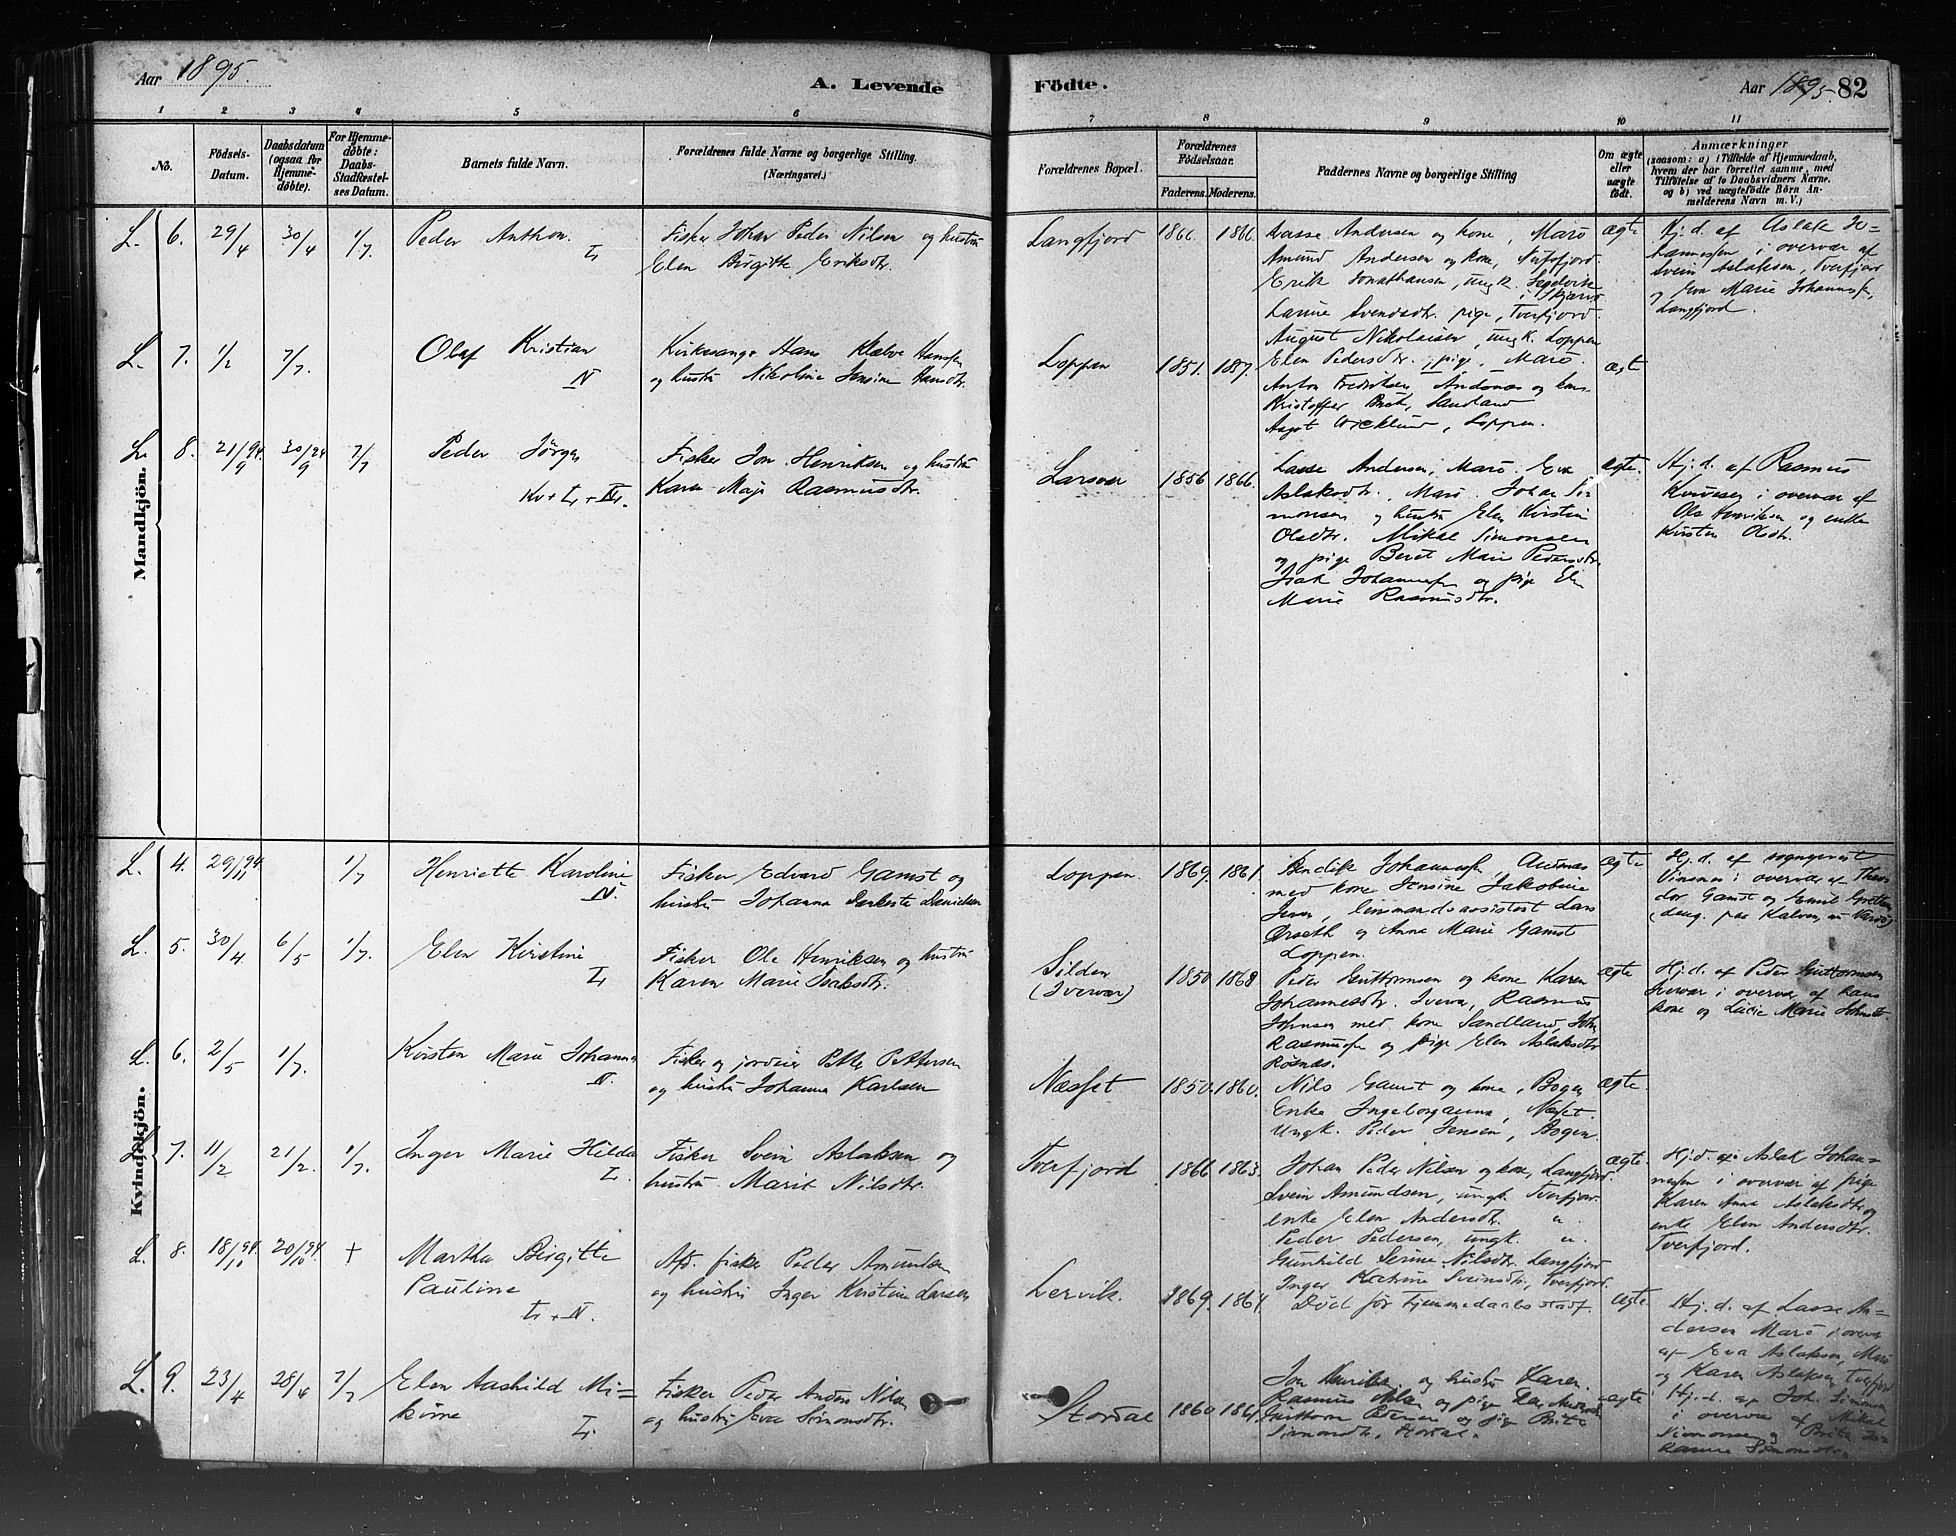 Aar 1895.
A. Levende
Födte.
Aar 1895. 82
1 2 3 4 5 6 7 8 9 10 11
No.
Födsels-
Datum.
Daabsdatum
(ogsaa for
Hjemme-
døbte).
For Hjemme-
døbte:
Daabs-
Stadfæstel-
ses Datum.
Barnets fulde Navn.
Forældrenes fulde Navne og borgerlige Stilling.
(Næringsvei.)
Forældrenes Bopæl.
Forældrenes
Födselsaar.
Faderens. Moderens.
Faddernes Navne og borgerlige Stilling
Om ægte
eller
uægte
födt.
Anmærkninger
(saasom: a) i Tilfælde af Hjemmedaab,
hvem der har forrettet samme, med
Tilföielse af to Daabsvidners Navne,
og b) ved uægtefödte Börn An-
melderens Navn m. V.)
Mandkjön.
L. 6. 29/4 30/4 1/7. Peder Anthon. L.
Fisker Johan Peder Nilsen og hustru
Elen Birgitte Eriksdtr.
Langfjord 1866. 1866.
Lasse Andersen og kone, Marö
Amund Andersen og kone,
Erik Jonathansen, ungk. Segelvik
i Skjervö
Laurie Svendsdtr. pige, Tverfjord.
ægte
Hj.d. af Aslak Jo-
hannessen i overvær af
Svein Aslaksen, Tverfjord
og Eva Marie Johannesd.,
Langfjord.
L. 7. 1/2 7/7. Olaf Kristian N
Kirkesanger Hans Hansen
og hustru Nikoline Jensine Hansdtr.
Loppen 1851. 1857.
August Nikolaisen, ungk. Loppen
Elen Pedersdtr. pige, Marö.
Anton Fredriksen, Andsnæs og kone
Kristoffer Buck, Sandland
Aagot Wicklund, Loppen.
ægt
L. 8. 21/9 94. 30/9 94 7/7 Peder Jörgen
Kv + L + N.
Fisker Jon Henriksen og hustru
Karen Maja Rasmusdtr.
Larsvær 1856 1866.
Lasse Andersen, Marö. Eva
Aslaksdtr., Marö. Johan Si-
monsen og hustru Elen Kirstine
Olsdtr. Mikal Simonsen
og pige Beret Marie Pedersdtr.
Isak Johannesen og pige Elen
Marie Rasmusdtr.
ægte.
Hj.d. af Rasmus
i overvær af
Ole Henriksen og enke
Kirsten Olsdtr.
Kvindekjön.
L. 4. 29/11 94. 1/7 Henriette Karoline N.
Fisker Edvard Gamst og
hustru Johanna Danielsen
Loppen. 1869. 1861.
Bendik Johannesen, Andsnæs
med kone Jensine Jakobine
Iversen, lensmandsassistent Lars
Örseth og Anna Marie Gamst
Loppen.
ægte
Hj.d. af sogneprest
i overvær af Theo-
dor Gamst og Emil
L. 5. 30/4 6/5 1/7. Elen Kirstine L.
Fisker Ole Henriksen og hustru
Karen Marie Isaksdtr.
Silden
(Iverværd)
1850 1868
Peder Guttormsen og kone Karen
Johannesdtr. Iversvær, Rasmus
Johnsen med kone Sandland, John
Rasmusen og pige Elen Aslaksdtr
Rösnæs.
ægte
Hj.d. af Peder Guttormsen
Iversvær i overvær af hans
kone og Lucie Marie Johnsd.
L. 6. 2/5 1/7. Kirsten Marie Johanna N.
Fisker og jordeier Petter Pettersen
og hustru Johanna Karlsen
Næsset 1850. 1860.
Nils Gamst og kone, Bogen
Enke Ingeborganna, Næset.
Ungk. Peder Jensen, Bogen.
ægte
L. 7. 11/2 21/2. 1/7. Inger Marie Hilda L.
Fisker Svein Aslaksen og
hustru Marit Nilsdtr.
Tverfjord 1866 1863.
Johan Peder Nilsen og kone, Langfjord.
Svein Amundsen, ungk. Tverfjord
enke Elen Andersdtr. "
Peder Pedersen, ungk. "
Gunhild Serine Nilsdtr. Langfjord
Inger Katrine Sveinsdtr, Tverfjord.
ægte.
Hj.d. af Aslak Johan-
nesen i overvær af pige
Karen Anna Aslaksdtr og
enke Elen Andersdtr.
Tverfjord.
L. 8. 18/10 94. 20/10 94. + Martha Birgitte
Pauline
L + N.
Afd. fisker Peder Amundsen
og hustru Inger Kristine Larsen
Lervik. 1869. 1864
Död för hjemmedaabs stadf.
ægte
Hj.d. af Lasse An-
dersen Marö i overvær
af Eva Aslaksen, Marö
og Karen Aslaksen, Tverfjord
L. 9. 23/4 28/4 7/7 Elen Aashild Mi-
kóme L.
Fisker Peder Anders Nilsen
og hustru Eva Simonsdtr.
Stordal 1860 1861.
Jon Henriksen og hustru Karen
Rasmus Nilsen og pige
Guttorm Pedersen og pige Brita
Simonsdtr. Stordal.
ægte
Hj.d. af Joh. Simonsen
i overvær af Mikal
Simonsen og Brita
Simonsdtr.